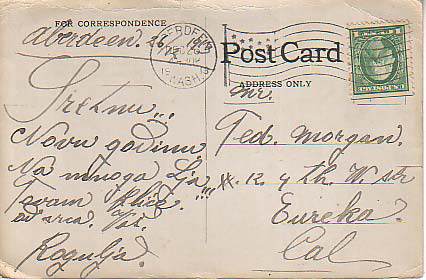 FOR CORRESPONDENCE
Aberdeen. 26
ABERDEEN
DEC 26
WASH.
Post Card
ADDRESS ONLY
Sretnu...
Novu godinu
Na mnoga Lja
Tvam kliče
od srca. Vaš
Rogulja.
Mr.
Ted. Morgan.
th. W. str
Eureka.
Cal